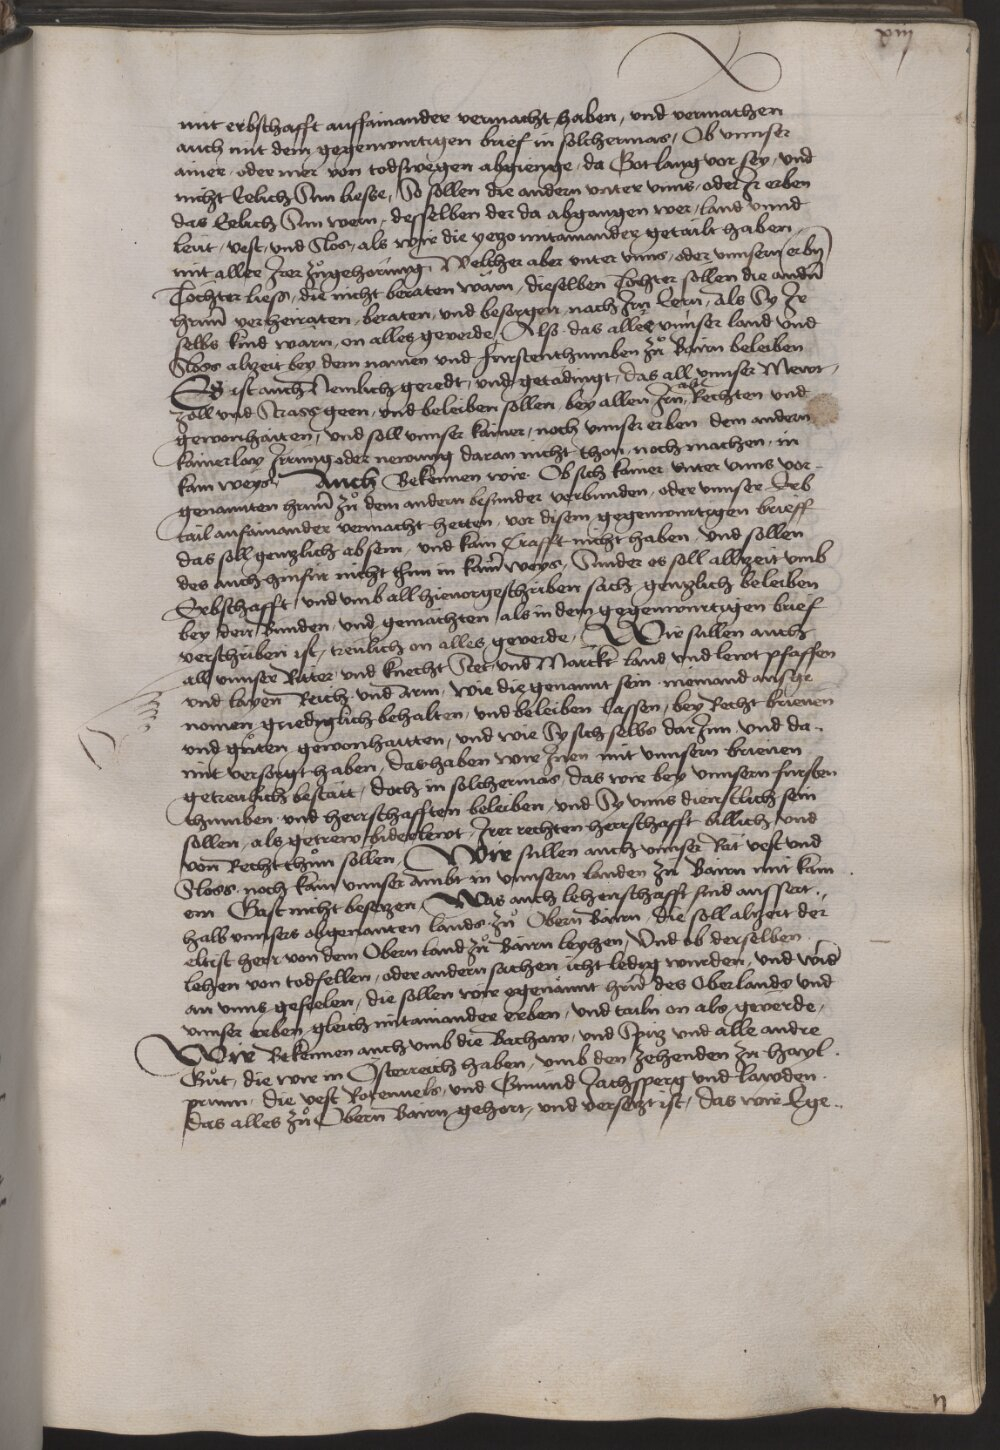 xiij
mit erbschafft auffainander vermacht haben, und vermachen
auch mit dem gegenwurtigen brief in solchermas, Ob unnser
ainer, oder mer von todswegen abgienge, da Got lang vor sey, und
nicht Eelich Sun liesse, So sollen die andern unter unns, oder Ir erben
das Eelich Sun wern, desselben der da abgangen wer, land unnd
leut, vest, und Slos, als wir die yezo mitainander getailt haben,
mit aller Irer zugehorung, Welcher aber unter unns, oder unnsern erbn
Tochter liess, die nicht beraten warn, dieselben Tochter sollen die andn
hrnn verheiraten, beraten, und besorgen, nach Irn Eern, als Sy Ir
selbs kind warn, on alles geverde, Also das alles unnser land und
Sloss alzeit bey dem namen und Furstenthumben zu Bairn beleiben
Es ist auch Nemlich geredt, und getadingt, das all unnser Mewt,
zoll und Strass geen, und beleiben sollen, bey allen Irn allt Rechten und
gewonhaiten, und soll unnser kainer, noch unnser erben dem andern
kainerlay Irrung oder newung daran nicht thon, noch machen, in
kain weys, Auch Bekennen wir Ob sich kainer unter unns vor
genannten hrnn zu dem andern besunder verbunden, oder unnser Erb
tail aufainander vermacht hetten, vor disem gegenwurtigen brieff
das soll genzlich ab sein, und kain Crafft nicht haben, und sollen
des auch hinfur nicht thun in kainn weys, Sunder es soll allzeit umb
Erbschafft, und umb all hievorgeschriben sach genzlich beleiben
bey den Bunden, und gemachten, als in dem gegenwurtigen brief
verschriben ist, treulich on alles geverde, Wir sullen auch
all unnser Ritter und knecht Stet, und Marckt land und lewt pfaffen
und layen Reich und Arm, wie die genannt sein niemand ausge
nomen, gnediglich behalten, und beleiben lassen, bey Recht brieven
und guten gewonhaitten, und wie Sy sich selbs dar Inn und da
mit versorgt haben, das haben wir Inen mit unnsern brieven
getreulich bestatt, doch in solchermas, das wir bey unnsern fursten
thumben und herrschafften beleiben, und Sy unns dienstlich sein
sollen, als getrew biderlewt, Irer rechten herrschafft billich, und
von Recht thun sollen, Wir sullen auch unnser Rat vest und
Sloss, noch kain unnser Ambt in unnsern landen zu Bairn mit kain
em Gast nicht besezen, Was auch lehenschafft sind aussert
halb unnsers obgenanten lands zu Obern Bairn, die soll alzeit der
eltist herr von dem Obern land zu Bairn leyhen, Und ob derselben
lehen von todfellen, oder andern sachen icht ledig wurden, und wid
an unns gefielen, die sollen wir egenannt hrnn des Oberlands und
unnser erben, gleich mitainander erben, und tailn on als geverde,
Wir Bekennen auch umb die Wachaw, und Spiz und alle andre
Gut, die wir in Osterreich haben, umb den zehenden zu hayl
prunn, die vest Rotennels, und Gmund Iachsperg und Lawden
das alles zu Obern Bairn gehort, und versezt ist, das wir Ege
n